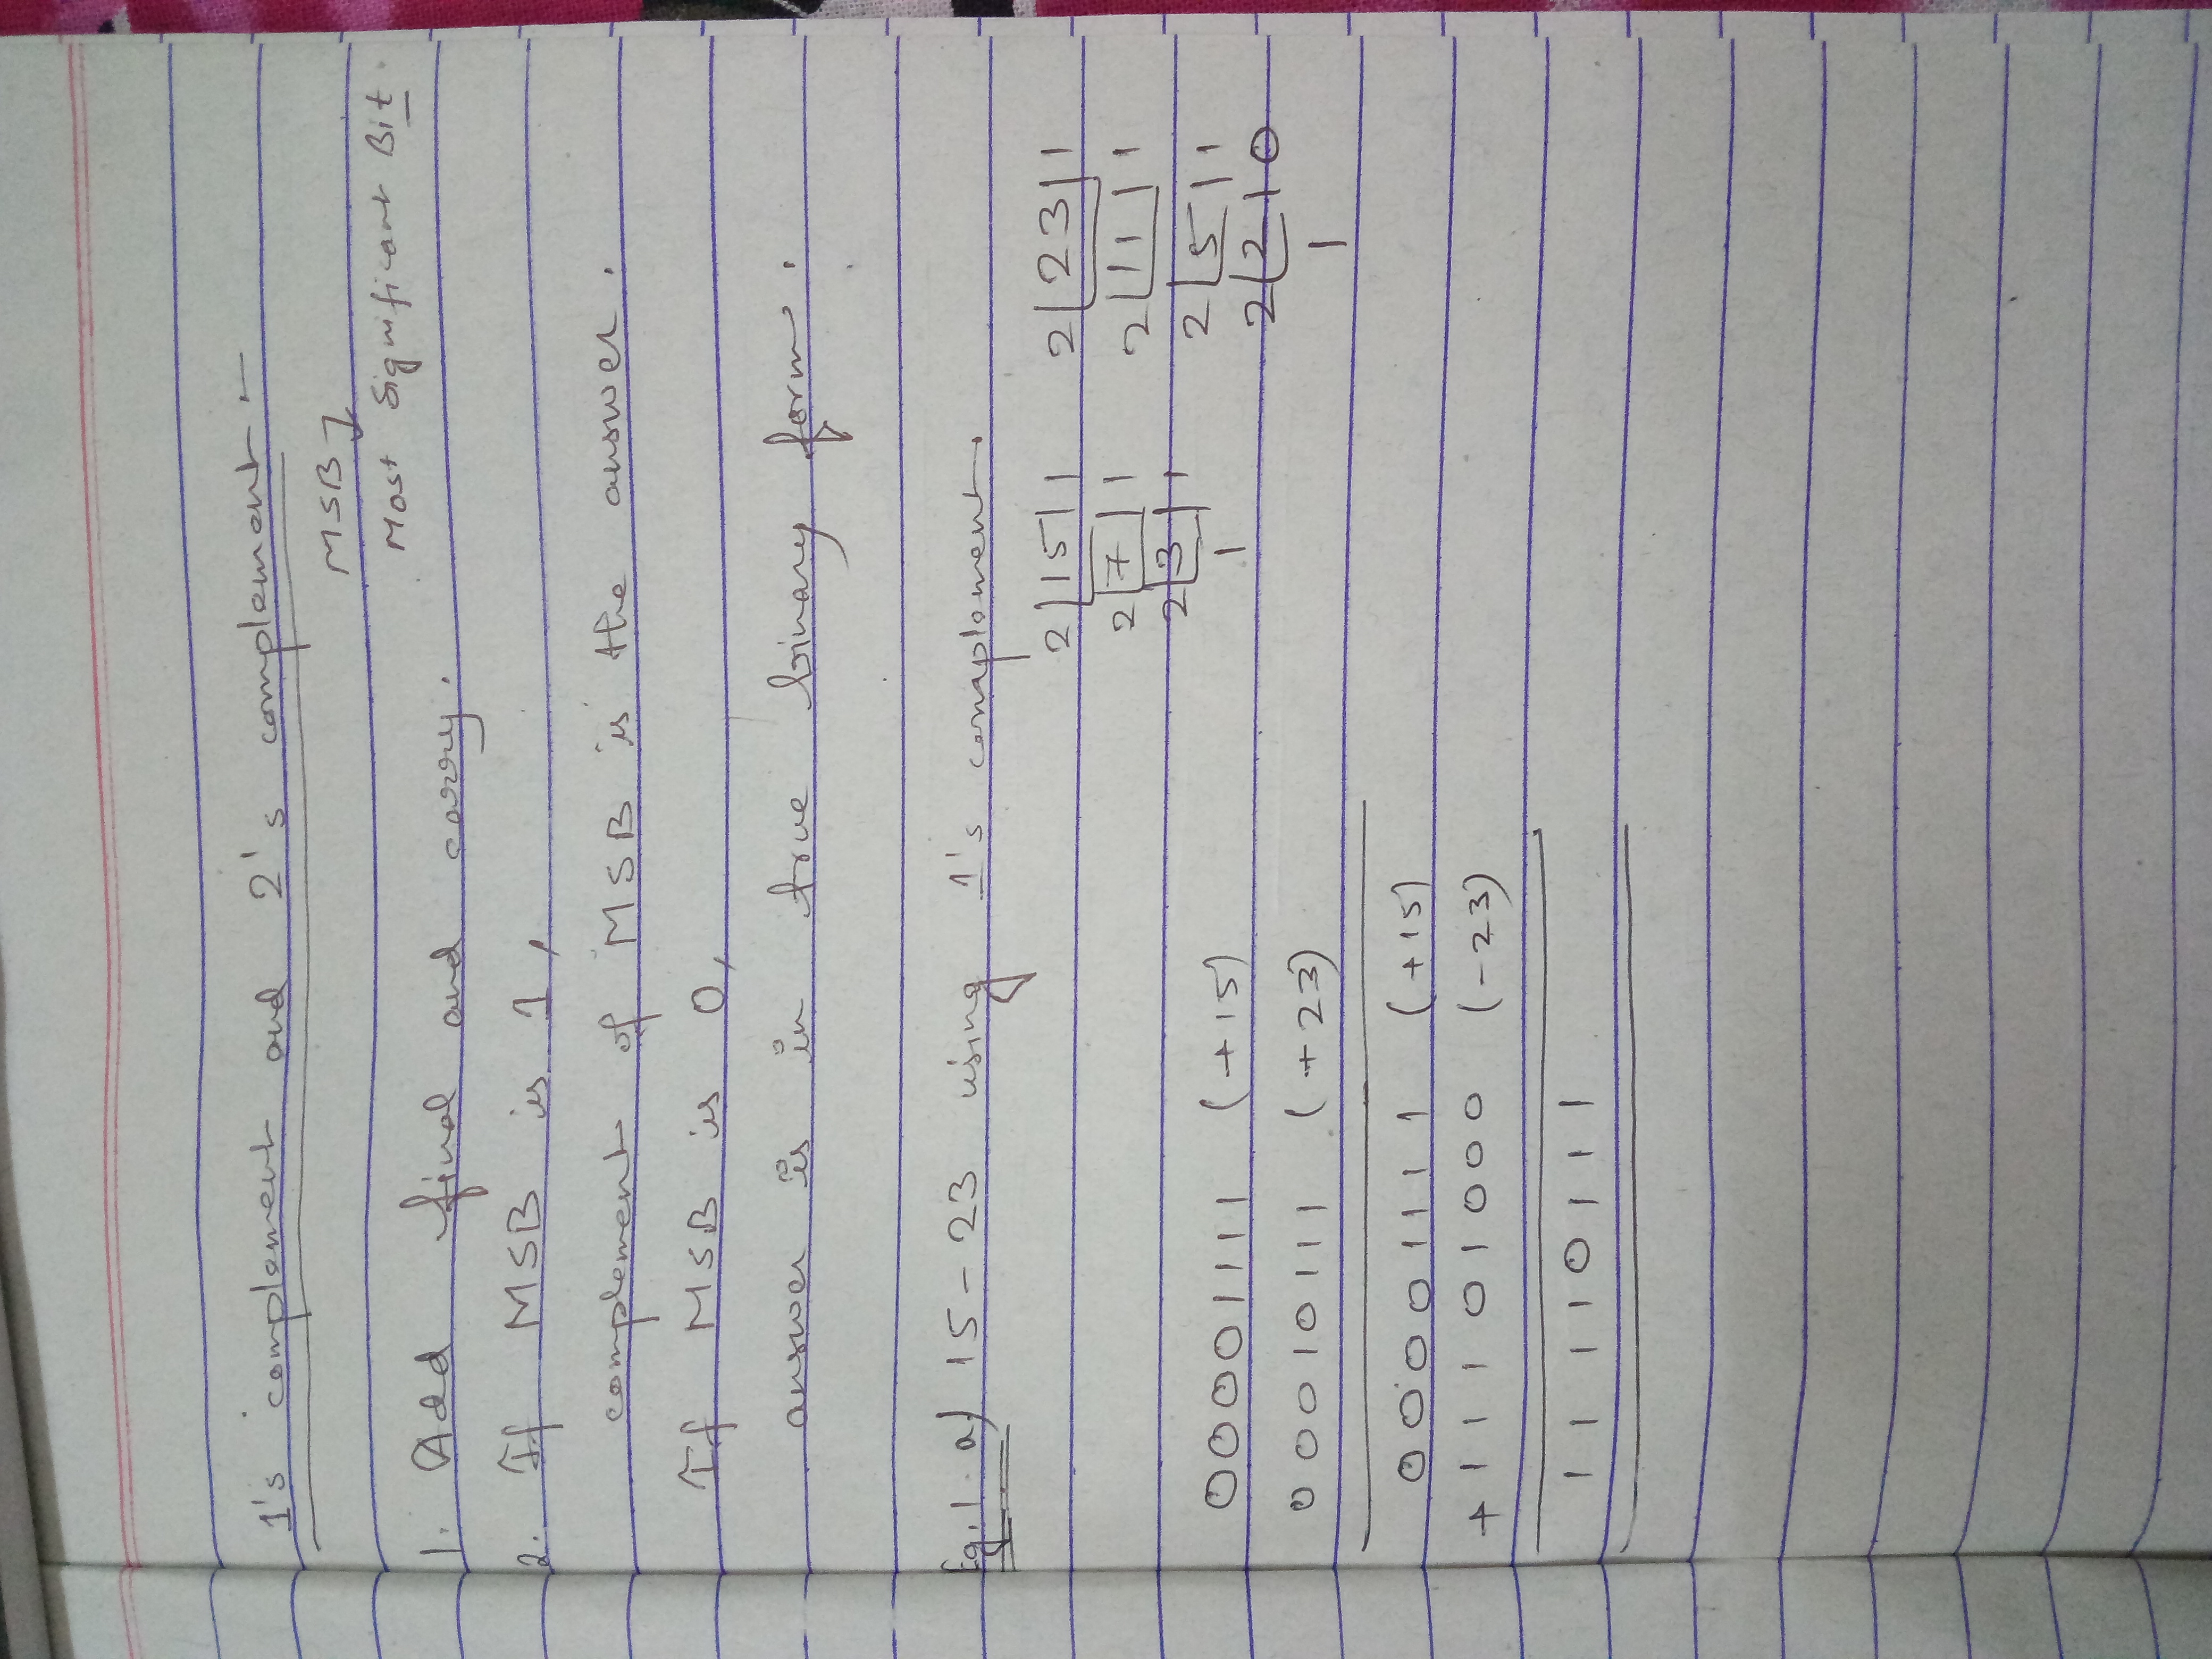 1's complement and 2's complement :-
MSB ↴
Most Significant Bit
1. Add final and carry.
2. If MSB is 1,
complement of MSB is the answer.
If MSB is 0,
answer is in true binary form.
Eg. 1. a) 15 - 23 using 1's complement.
2 | 15 | 1    2 | 23 | 1
2 | 7 | 1    2 | 11 | 1
2 | 3 | 1    2 | 5 | 1
1    2 | 2 | 0
1
00001111 (+15)
00010111 (+23)
00001111 (+15)
+ 11101000 (-23)
11110111